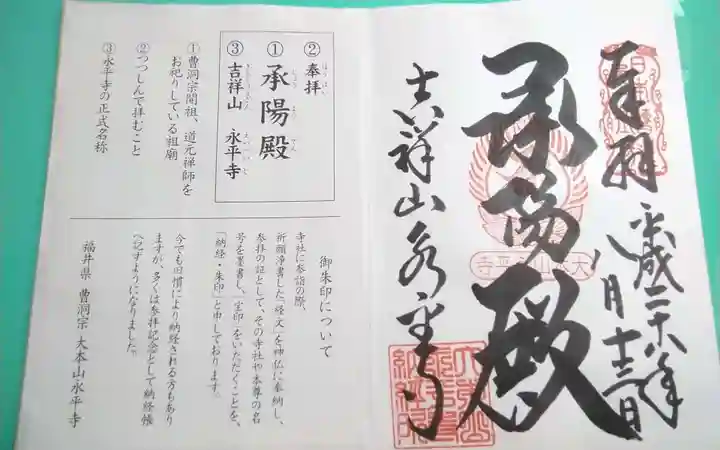 奉拝
平成二十八年
八月十三日
承陽殿
吉祥山永平寺
大本山永平寺
② 奉拝
ほうはい
① 承陽殿
じょうようでん
③ 吉祥山 永平寺
きちじょうざん えいへいじ
①曹洞宗開祖、道元禅師を
お祀りしている祖廟
②つつしんで拝むこと
③永平寺の正式名称
御朱印について
寺社に参詣の際、
祈願浄書した「経文」を神仏に奉納し、
参拝の証として、その寺社や本尊の名
号を墨書し、「宝印」をいただくことを、
「納経・朱印」と申しております。
今でも旧慣により納経される方もあり
ますが、多くは参拝記念として納経帳
へ記すようになりました。
福井県 曹洞宗 大本山永平寺